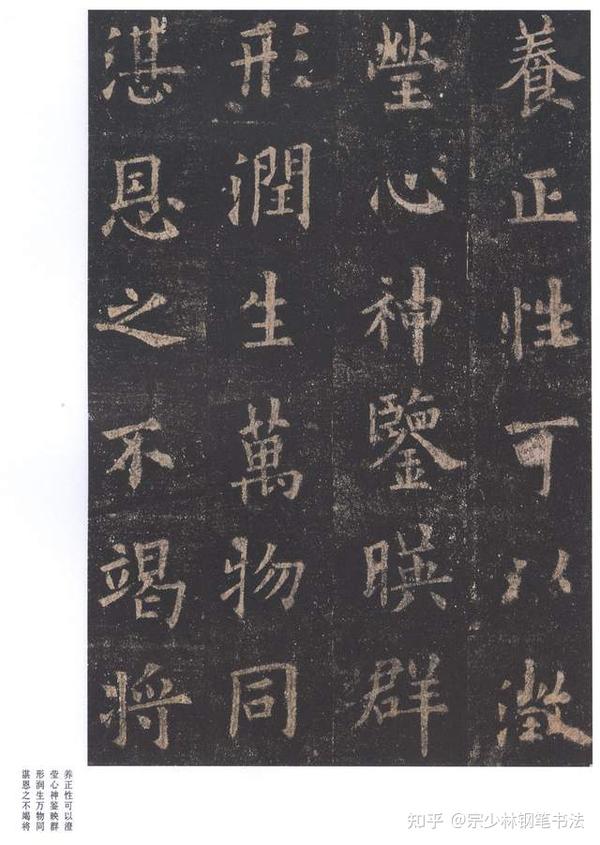 養正性可以澂
瑩心神鑒暎群
形潤生萬物同
湛恩之不竭將
养正性可以澄
莹心神鉴映群
形润生万物同
湛恩之不竭将
知乎 @宗少林钢笔书法